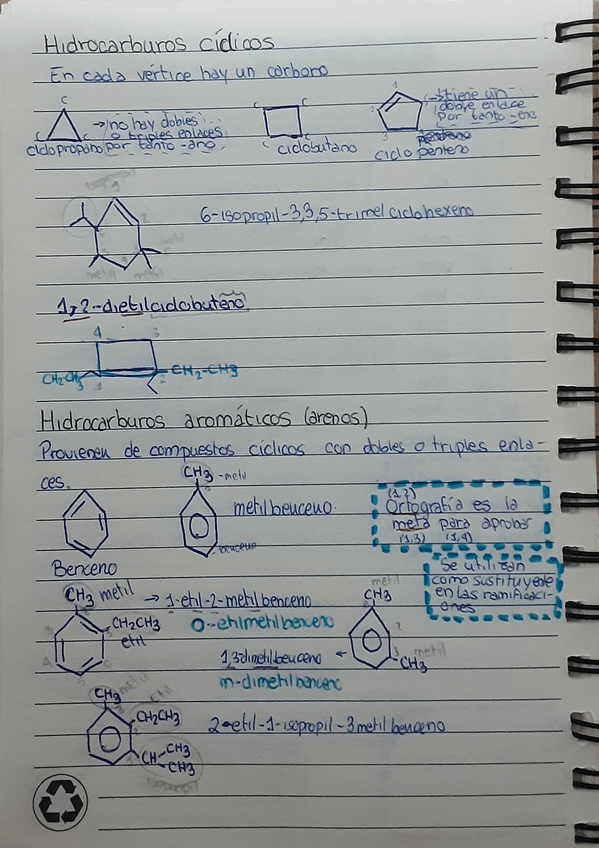 Hidrocarburos cíclicos
En cada vértice hay un carbono
C
C C
→ no hay dobles
o triples enlaces
por tanto -ano
ciclopropano
C C
C C
ciclobutano
1
3
→ tiene un
doble enlace
por tanto -eno
ciclo penteno
isopropil
2
6-isopropil-3,3,5-trimetil ciclohexeno
metil
metil metil
1,2-dietilciclobuteno
4 3
CH2CH3 1 2 CH2-CH3
Hidrocarburos aromáticos (arenos)
Provienen de compuestos cíclicos con dobles o triples enla-
ces.
CH3 -metil
metilbenceno
benceno
Benceno
(1,2)
Ortografía es la
meta para aprobar
(1,3) (1,4)
Se utilizan
como sustituyente
en las ramificaci-
ones
CH3 metil → 1-etil-2-metilbenceno
CH2CH3
etil
o-etilmetilbenceno
metil
CH3
2
3
CH3 metil
1,3dimetilbenceno ←
m-dimetilbenceno
CH3 metil
etil
CH2CH3
2-etil-1-isopropil-3metilbenceno
CH CH3
CH3
isopropil